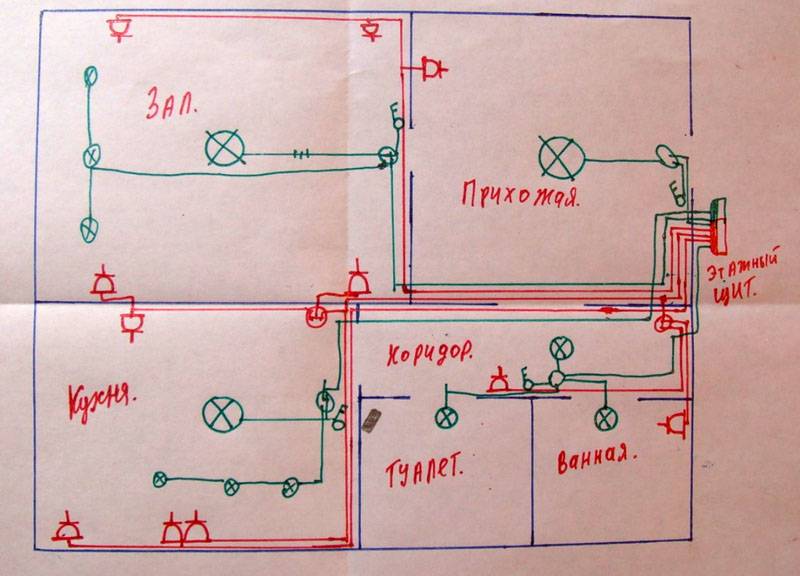 Зал.
Прихожая.
Этажный
щит.
Коридор.
Кухня.
Туалет.
Ванная.